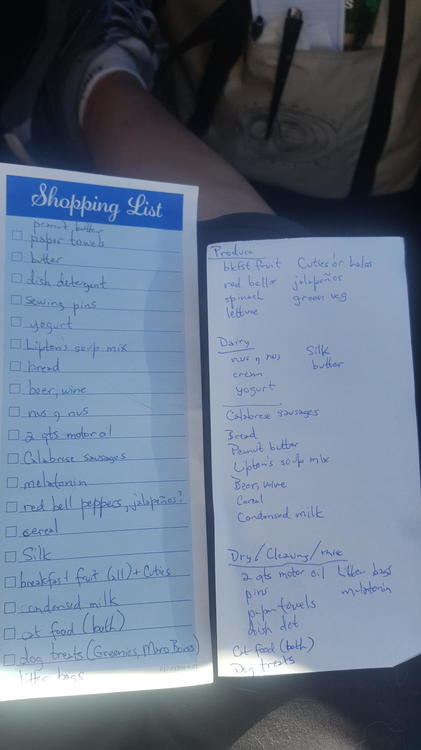 Shopping List
peanut butter
paper towels
butter
dish detergent
sewing pins
yogurt
Lipton's soup mix
bread
beer, wine
2 qts motor oil
Calabrese sausages
melatonin
red bell peppers, jalapeños?
cereal
Silk
breakfast fruit (all) + Cuties
condensed milk
cat food (both)
dog treats (Greenies, Maro Bones)
litter bags
Produce
bkfst fruit Cuties or halos
red bells jalapeños
spinach green veg
lettuce
Dairy
Silk
cream butter
yogurt
Calabrese sausages
Bread
Peanut butter
Lipton's soup mix
Beer, wine
Cereal
Condensed milk
Dry/Cleaning/misc
2 qts motor oil litter bags
pins melatonin
paper towels
dish det
Cat food (both)
Dog treats